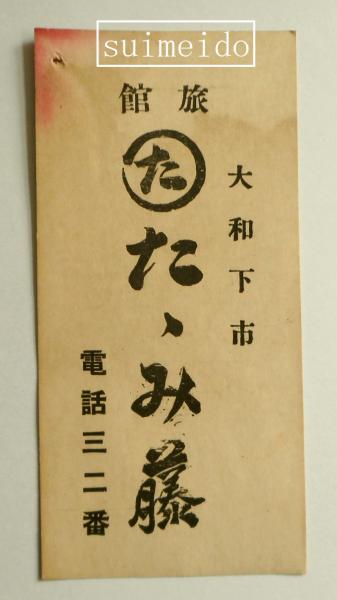 suimeido
旅館
大和下市
た
たゝみ藤
電話三二番